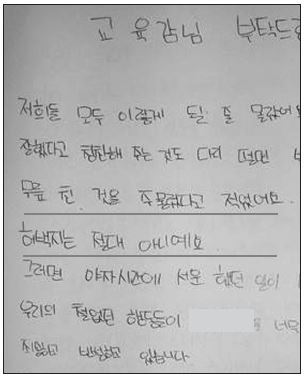 교육감님 부탁드
저희들 모두 이렇게 될 줄 몰랐어
잘했다고 칭찬해 주는 것도 다리 떨면
무릎 친 것을 주물렀다고 적었어요.
허벅지는 절대 아니예요
그러면 야자시간에 서운 했던 일이
우리의 철없던 행동들이 너무
죄송하고 반성하고 있습니다